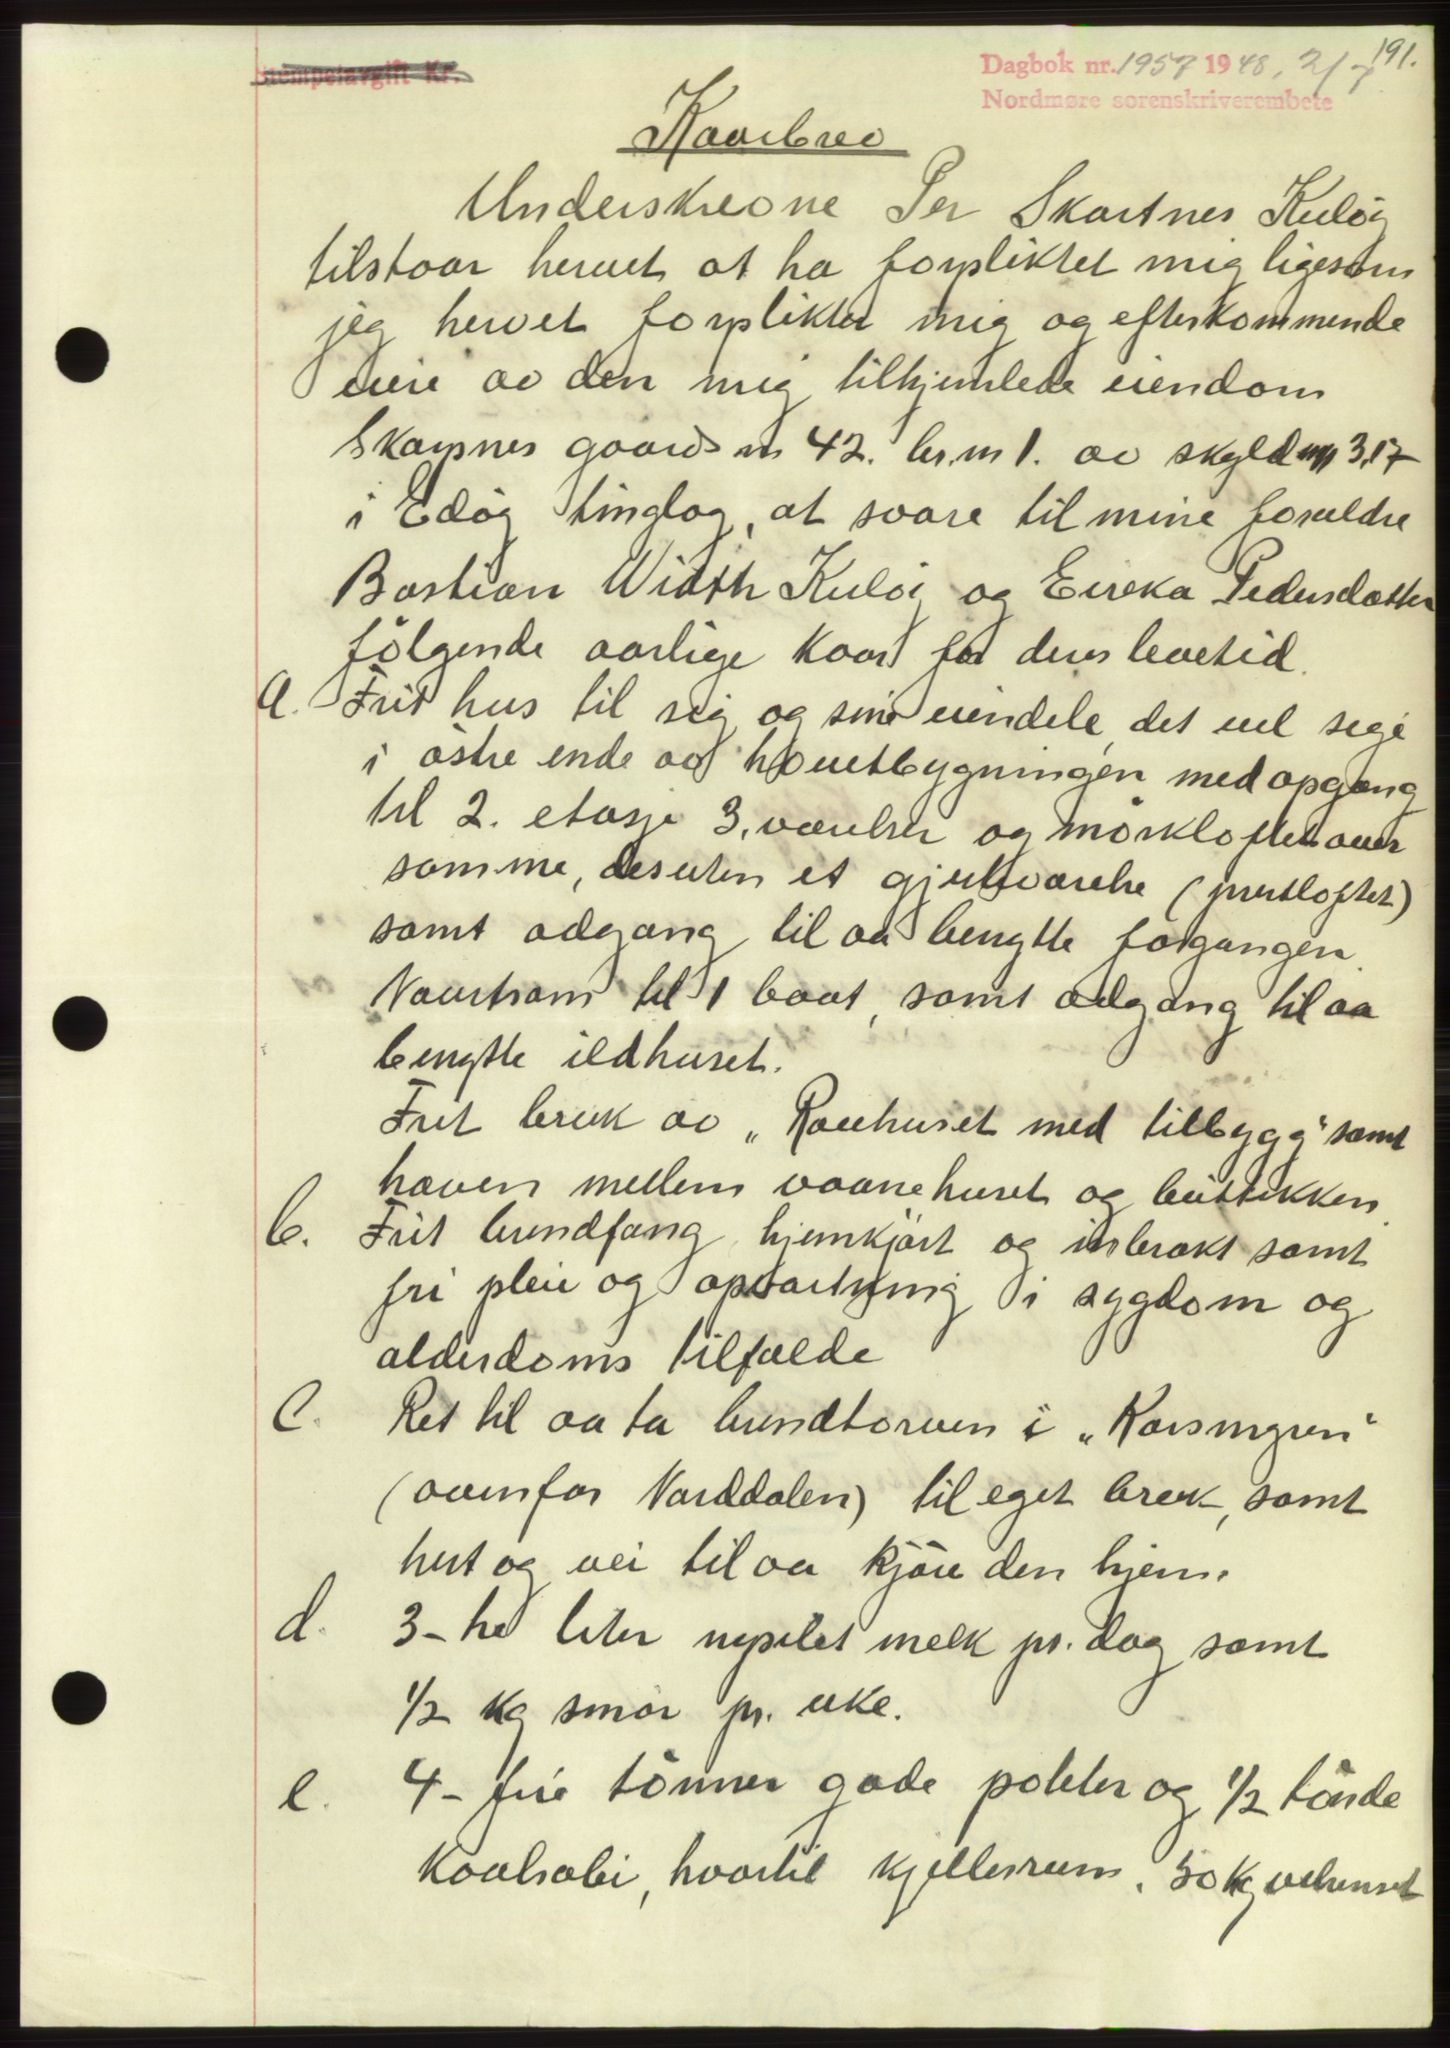 Stempelavgift Kr.
Dagbok nr. 1957 1948, 2/7 191.
Nordmøre sorenskriverembete
Kaarbrev
Underskrevne Per Skartnes Kuløy
tilstaar hervet at ha forpliktet mig ligesom
jeg hervet forplikter mig og efterkommende
eiere av den mig tilhjemlede eiendom
Skarpnes gaards nr 42. br. nr 1. av skyld mrk 3,17
i Edøy tinglag, at svare til mine forældre
Bastian Width Kuløy og Eireka Pedersdatter
følgende aarlige kaar for deres levetid.
a. Frit hus til sig og sine eiendele, det vil sige
i østre ende av hovetbygningen med opgang
til 2. etasje 3, værelser og mørkloftet over
samme, desuten et gjestværelse (prestloftet)
samt adgang til aa benytte forgangen.
Naustrom til 1 baat, samt adgang til aa
benytte ildhuset.
Frit bruk av "Rauhuset med tilbygg" samt
haven mellem vaanehuset og butikken.
b. Frit brendfang hjemkjørt og inbrakt samt
fri pleie og opvartning i sygdom og
alderdoms tilfælde
C. Ret til aa ta brendtorven i "Korsmyren"
(ovenfor Varddalen) til eget bruk, samt
hest og vei til aa kjøre den hjem.
d. 3- tre liter nysilet melk pr. dag samt
1/2 kg smør pr. uke.
e. 4- fire tønner gode poteter og 1/2 tønde
kaalrabi, hvortil kjellerrum, 50 kg velrenset